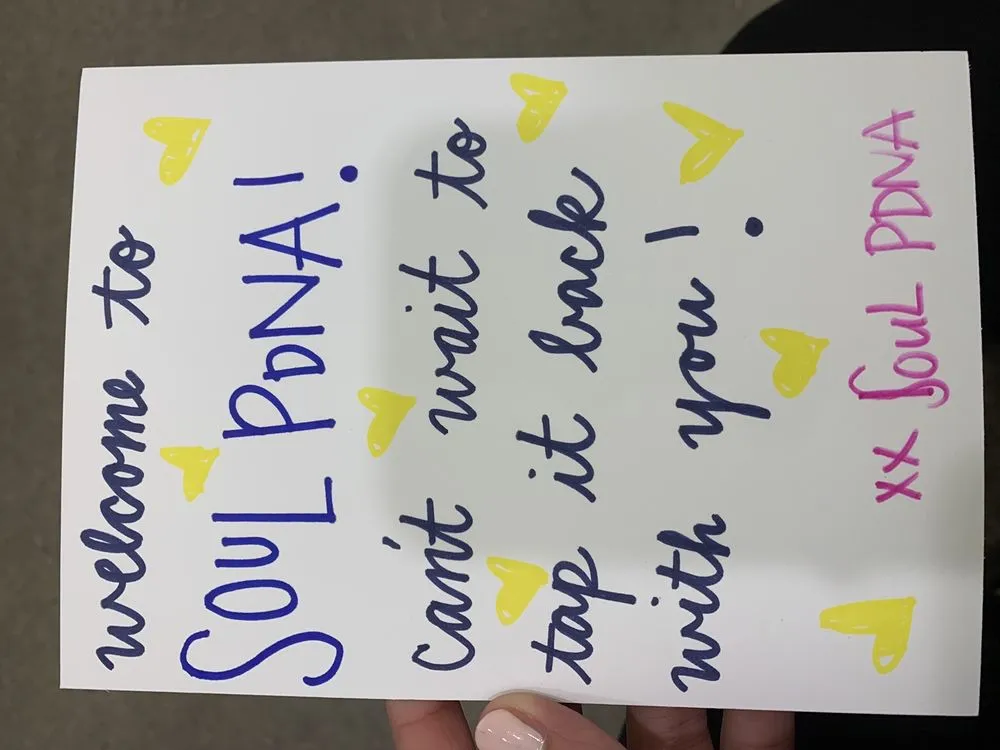 welcome to
SOUL PDNA!
can't wait to
tap it back
with you!
xx SOUL PDNA